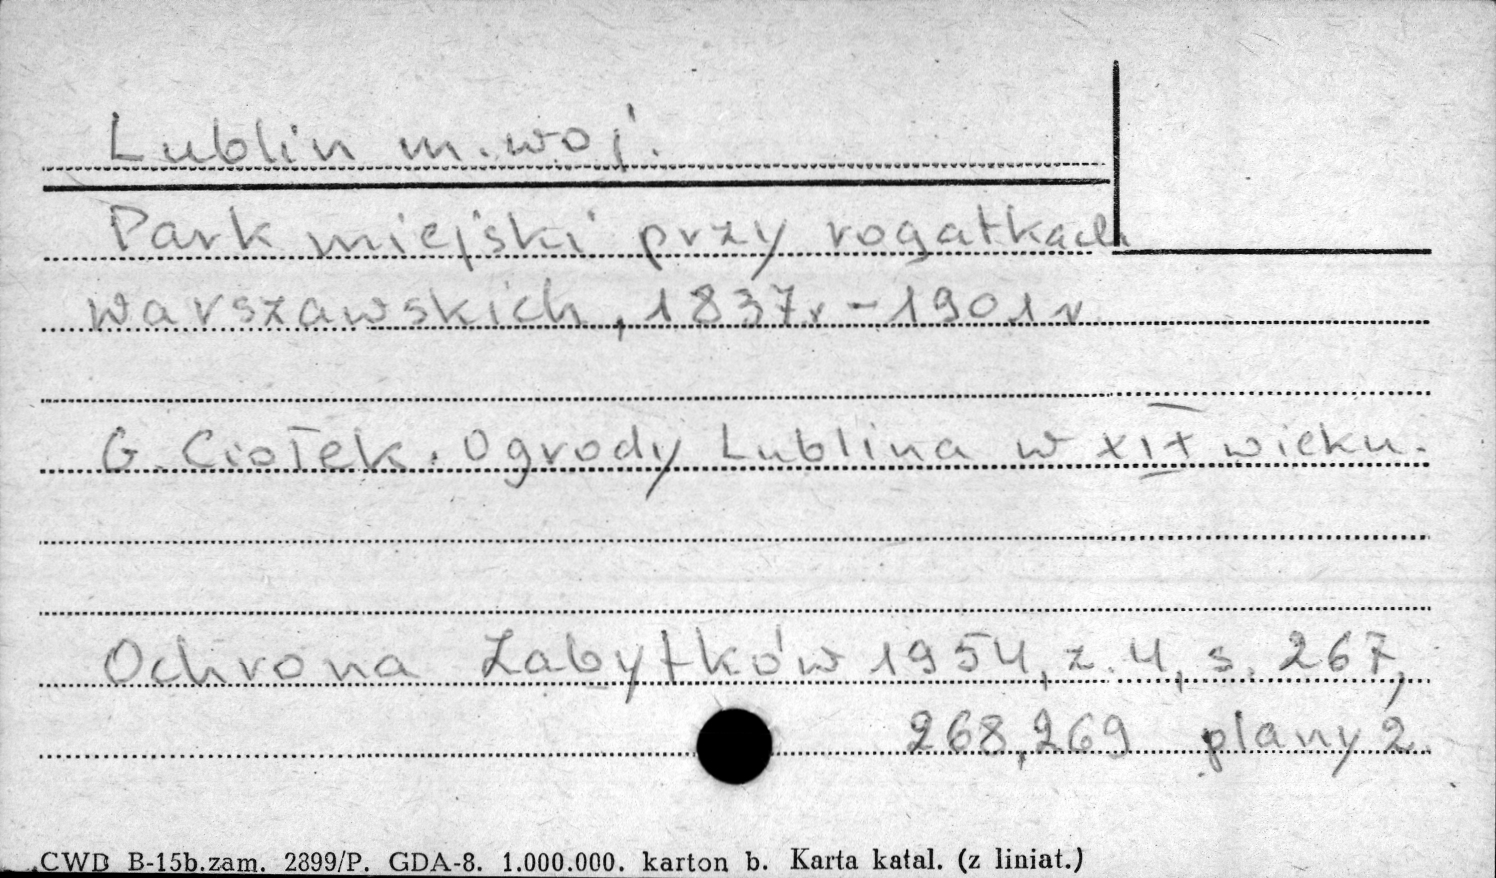 Lublin m. woj.
Park miejski przy rogatkach
warszawskich, 1837r - 1901r
G. Ciołek. Ogrody Lublina w XIX wieku.
Ochrona Zabytków 1954, z. 4, s. 267,
268, 269 plany 2
CWD B-15b. zam. 2899/P. GDA-8. 1.000.000. karton b. Karta katal. (z liniat.)